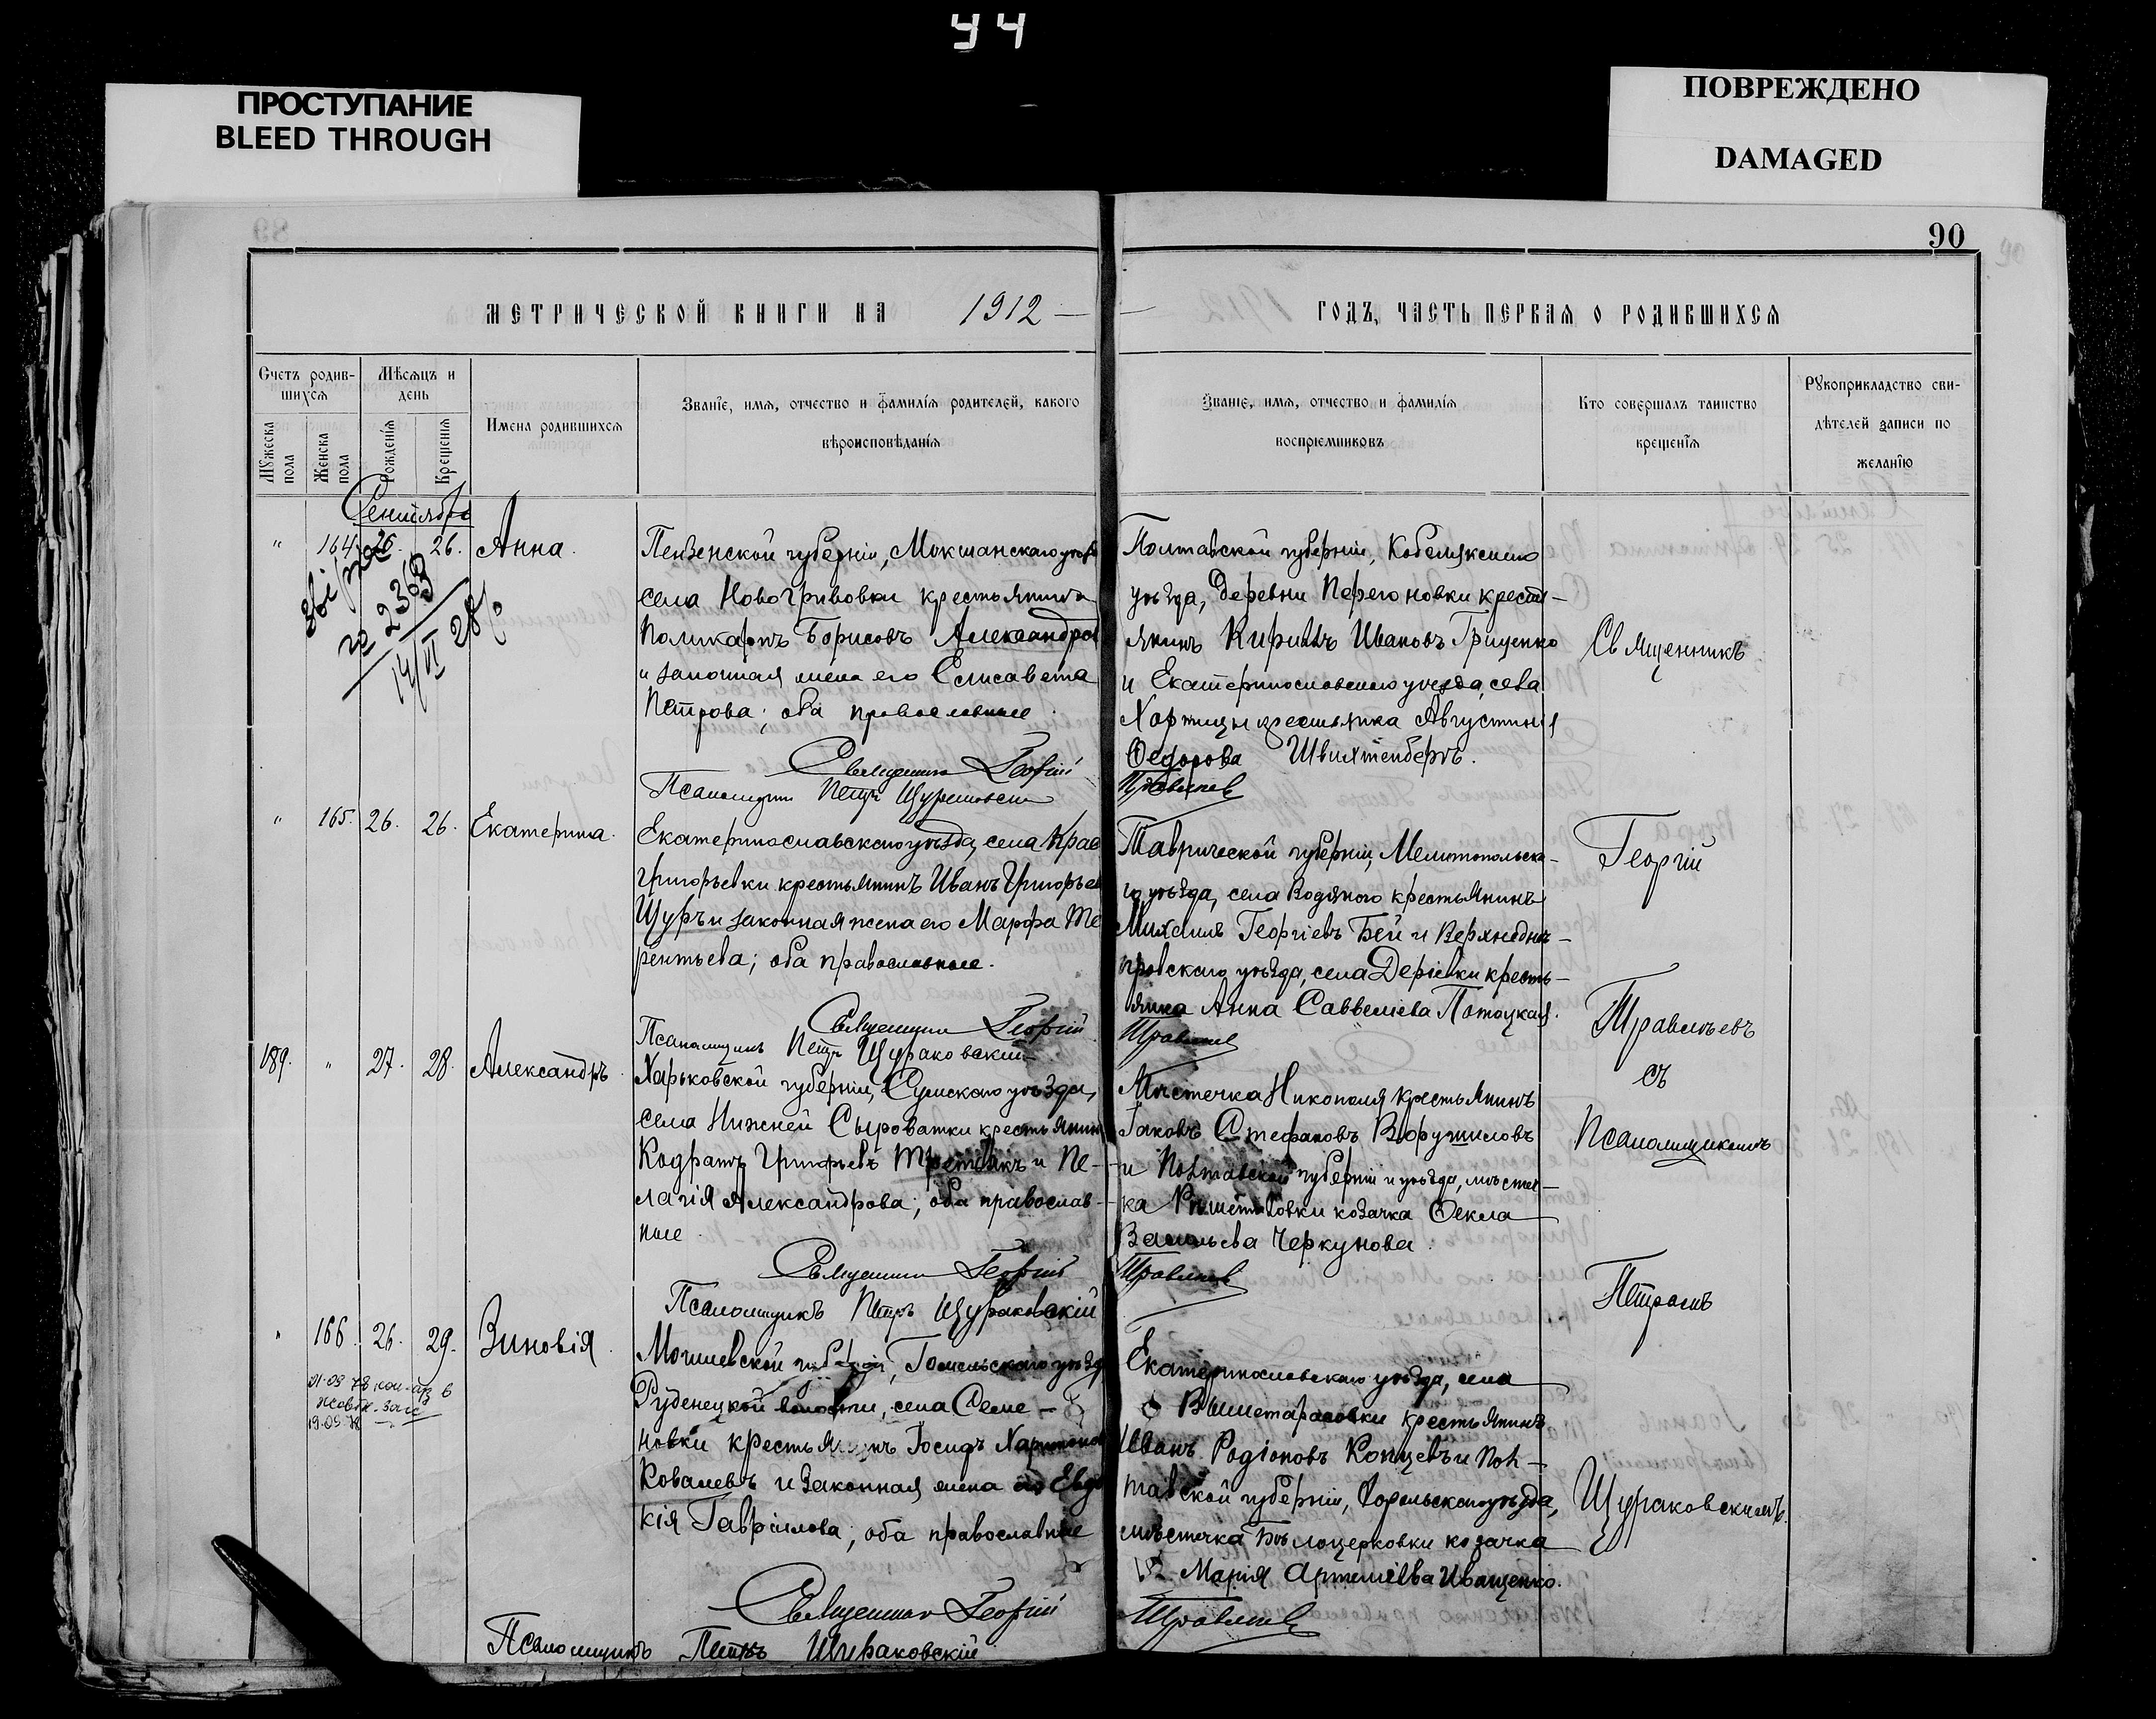 94
ПРОСТУПАНИЕ
BLEED THROUGH
ПОВРЕЖДЕНО
DAMAGED
90
МЕТРИЧЕСКОЙ КНИГИ НА 1912
ГОДЪ, ЧАСТЬ ПЕРВАЯ О РОДИВШИХСЯ
Счетъ родив-
шихся
Мѣсяцъ и
день
Мужеска
пола
Женска
пола
Рожденія
Крещенія
Имена родившихся
Званіе, имя, отчество и фамилія родителей, какого
вѣроисповѣданія
Званіе, имя, отчество и фамилія
воспріемниковъ
Кто совершалъ таинство
крещенія
Рукоприкладство сви-
дѣтелей записи по
желанію
Сентябрь
" 164. 26. 26. Анна.
2363
14/VI 28
Пензенской губерніи, Мокшанскаго уѣзда
села Новогривовки крестьянинъ
Поликарпъ Борисовъ Александровъ
и законная жена его Елисавета
Петрова; оба православные
Священникъ Георгій
Псаломщикъ Петръ Щураковскій
Полтавской губерніи, Кобелякскаго
уѣзда, деревни Перегоновки кресть-
янинъ Кириллъ Ивановъ Гриценко
и Екатеринославскаго уѣзда, села
Хортицы крестьянка Августинія
Ѳедорова
Травлѣевъ
" 165. 26. 26. Екатерина.
Екатеринославскаго уѣзда, села Крас
григорьевки крестьянинъ Иванъ Григорьев
Щуръ и законная жена его Марѳа Те
рентьева; оба православные.
Священникъ Георгій
Псаломщикъ Петръ Щураковскій
Таврической губерніи, Мелитопольска-
го уѣзда, села Водяного крестьянинъ
Михаилъ Георгіевъ Бей и Верхнеднѣ-
провскаго уѣзда, села Деріевки кресть-
янка Анна Саввеліева Потоцкая.
Травлѣевъ
189. " 27. 28. Александръ
Харьковской губерніи, Сумскаго уѣзда,
села Нижней Сыроватки крестьянин
Кодратъ Григорьевъ Третьякъ и Пе-
лагія Александрова; оба православ-
ные.
Священникъ Георгій
Псаломщикъ Петръ Щураковскій
Мѣстечка Никополя крестьянинъ
Іаковъ Стефановъ Ворушиловъ
и Полтавской губерніи и уѣзда, мѣстеч-
ка Рѣшетиловки козачка Ѳекла
Васильева Черкунова.
Травлѣевъ
" 166. 26. 29. Зиновія.
19.05.78
Могилевской губерніи, Гомельскаго уѣзда
Руденецкой волости, села Семе-
новки крестьянинъ Іосифъ Харитонов
Ковалевъ и законная жена его Евдо
кія Гавріилова; оба православные
Священникъ Георгій
Псаломщикъ Петръ Щураковскій
Екатеринославскаго уѣзда, села
Вышетарасовки крестьянинъ
Иванъ Родіоновъ Концевъ и Пол-
тавской губерніи, Хорольскаго уѣзда,
мѣстечка Бѣлоцерковки козачка
Марія Артеміева Иващенко.
Травлѣевъ
Священникъ
Георгій
Травлѣевъ
съ
Псаломщикомъ
Петромъ
Щураковскимъ.